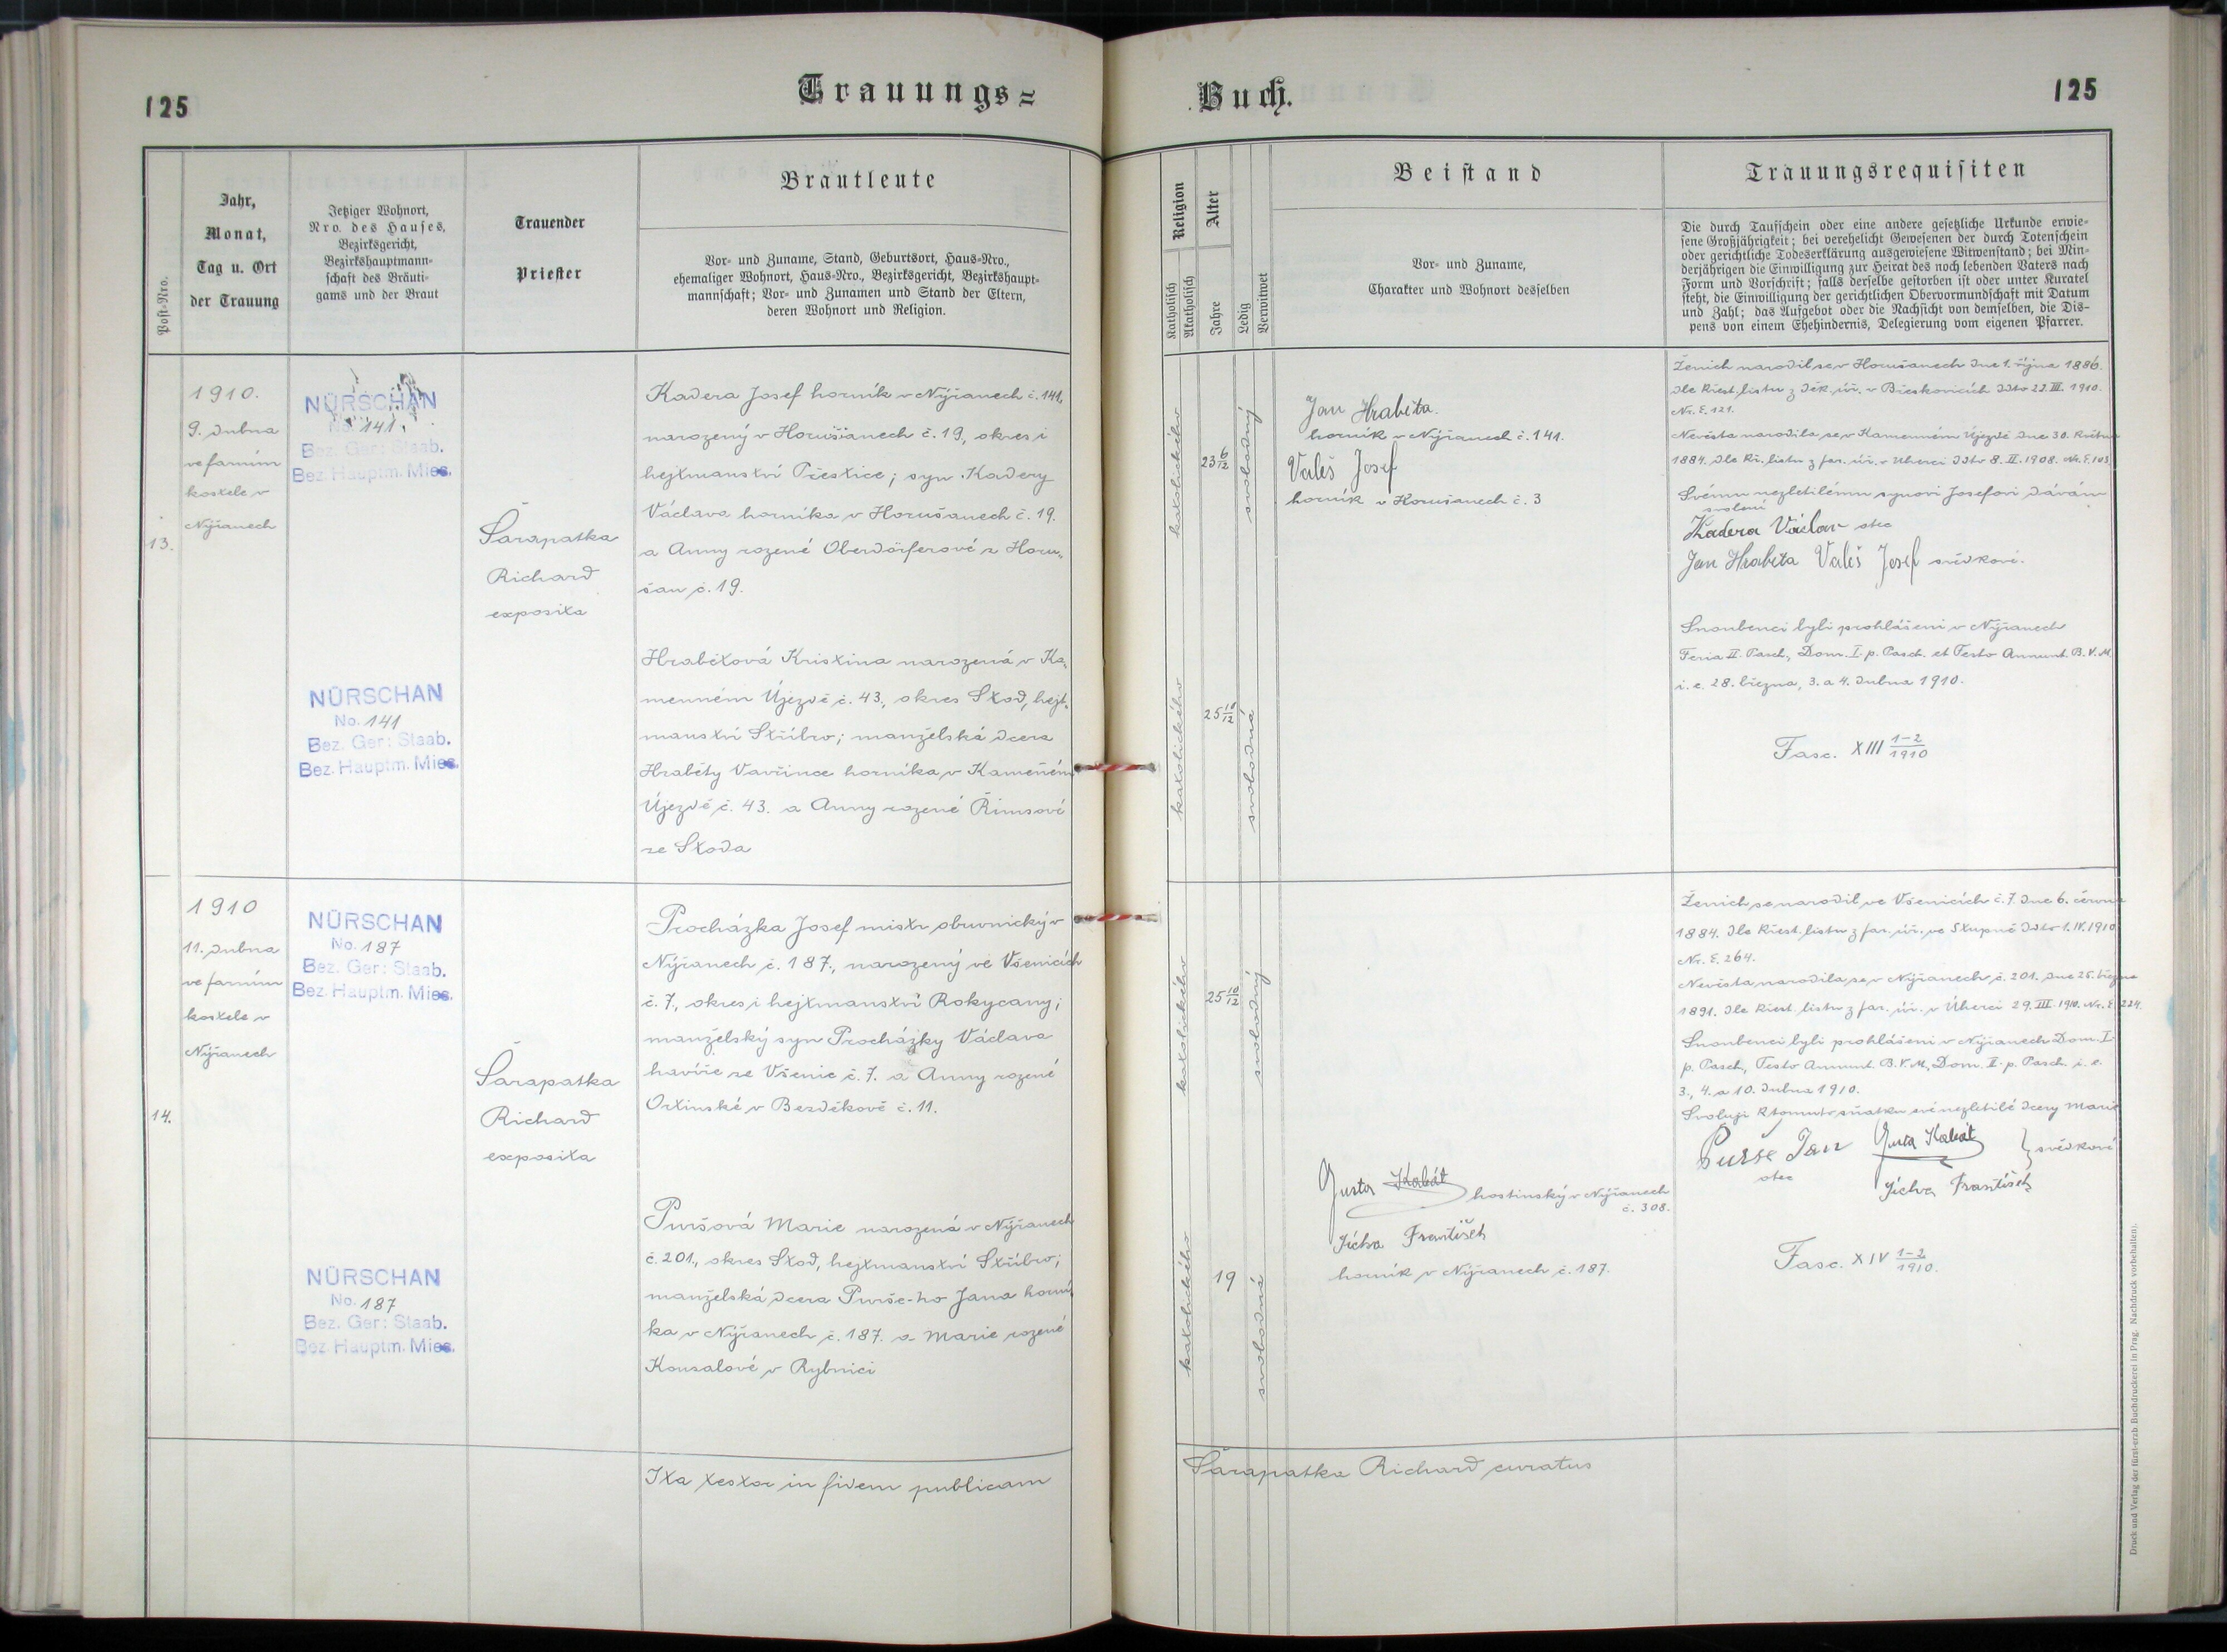 125
Trauungs=
Post=Nro.
Jahr,
Monat,
Tag u. Ort
der Trauung
Jetziger Wohnort,
Nro. des Hauses,
Bezirksgericht,
Bezirkshauptmann=
schaft des Bräuti=
gams und der Braut
Trauender
Priester
Brautleute
Vor= und Zuname, Stand, Geburtsort, Haus=Nro.,
ehemaliger Wohnort, Haus=Nro., Bezirksgericht, Bezirkshaupt=
mannschaft; Vor= und Zunamen und Stand der Eltern,
deren Wohnort und Religion.
13.
1910.
9. dubna
ve farním
kostele v
Nýřanech
NÜRSCHAN
No. 141.
Bez. Ger: Staab.
Bez. Hauptm. Mies.
Šarapatka
Richard
exposita
Kadera Josef horník v Nýřanech č. 141,
narozený v Horušanech č. 19, okres i
hejtmanství Přestice; syn Kadery
Václava horníka v Horušanech č. 19.
a Anny rozené Oberdörferové z Horu„
šan č. 19.
NÜRSCHAN
No. 141
Bez. Ger: Staab.
Bez. Hauptm. Mies.
Hrabětová Kristina narozená v Ka„
menném Újezdě č. 43., okres Stod, hejt„
manství Stříbro; manželská dcera
Hraběty Vavřince horníka v Kameném
Újezdě č. 43. a Anny rozené Římsové
ze Stoda
14.
1910
11. dubna
ve farním
kostele v
Nýřanech
NÜRSCHAN
No. 187
Bez. Ger: Staab.
Bez. Hauptm. Mies.
Šarapatka
Richard
exposita
Procházka Josef mistr obuvnický v
Nýřanech č. 187., narozený ve Všenicích
č. 7., okres i hejtmanství Rokycany;
manželský syn Procházky Václava
havíře ze Všenic č. 7. a Anny rozené
Ortinské v Bezděkově č. 11.
NÜRSCHAN
No. 187
Bez. Ger: Staab.
Bez. Hauptm. Mies.
Puršová Marie narozená v Nýřanech
č. 201., okres Stod, hejtmanství Stříbro;
manželská dcera Purše-ho Jana horní„
ka v Nýřanech č. 187. a Marie rozené
Kouzalové v Rybnici
Ita testor in fidem publicam
Buch.
125
Religion
Katholisch
Akatholisch
Alter
Jahre
Ledig
Verwitwet
Beistand
Vor= und Zuname,
Charakter und Wohnort desselben
Trauungsrequisiten
Die durch Taufschein oder eine andere gesetzliche Urkunde erwie=
sene Großjährigkeit; bei verehelicht Gewesenen der durch Totenschein
oder gerichtliche Todeserklärung ausgewiesene Witwenstand; bei Min=
derjährigen die Einwilligung zur Heirat des noch lebenden Vaters nach
Form und Vorschrift; falls derselbe gestorben ist oder unter Kuratel
steht, die Einwilligung der gerichtlichen Obervormundschaft mit Datum
und Zahl; das Aufgebot oder die Nachsicht von demselben, die Dis=
pens von einem Ehehindernis, Delegierung vom eigenen Pfarrer.
katolického
23 6/12
svobodný
Jan Hraběta.
horník v Nýřanech č. 141.
Valeš Josef
horník v Horušanech č. 3
Ženich narodil se v Horušanech dne 1. října 1886.
dle křest. listu z děk. úř. v Břeskovicích ddto 22. III. 1910.
Nr. E. 121.
Nevěsta narodila se v Kamenném Újezdě dne 30. května
1884. dle kř. listu z far. úř. v Úherci ddto 8. II. 1908. Nr. E. 103.
Svému nezletilému synovi Josefovi dávám
svolení
Kadera Václav otec
Jan Hraběta Valeš Josef svědkové.
katolického
25 10/12
svobodná
Snoubenci byli prohlášeni v Nýřanech
Feria II. Pasch., Dom. I. p. Pasch. et Festo Annunt. B. V. M.
i. e. 28. března, 3. a 4. dubna 1910.
Fasc. XIII 1-2/1910
katolického
25 10/12
svobodný
Ženich se narodil ve Všenicích č. 7. dne 6. června
1884. dle křest. listu z far. úř. ve Stupně ddto 1. IV. 1910
Nr. E. 264.
Nevěsta narodila se v Nýřanech č. 201. dne 25. března
1891. dle křest. listu z far. úř. v Úherci 29. III. 1910. Nr. E. 224.
Snoubenci byli prohlášeni v Nýřanech Dom. I.
p. Pasch., Festo Annunt. B. V. M., Dom. II. p. Pasch. i. e.
3., 4. a 10. dubna 1910.
Svoluji k tomuto sňatku své nezletilé dcery Marie
Purše Jan Gusta Kabát } svědkové
otec
Jícha František
katolického
19
svobodná
Gusta Kabát hostinský v Nýřanech
č. 308.
Jícha František
horník v Nýřanech č. 187.
Fasc. XIV 1-2/1910.
Šarapatka Richard curatus
Druck und Verlag der fürst-erzb. Buchdruckerei in Prag. Nachdruck vorbehalten).